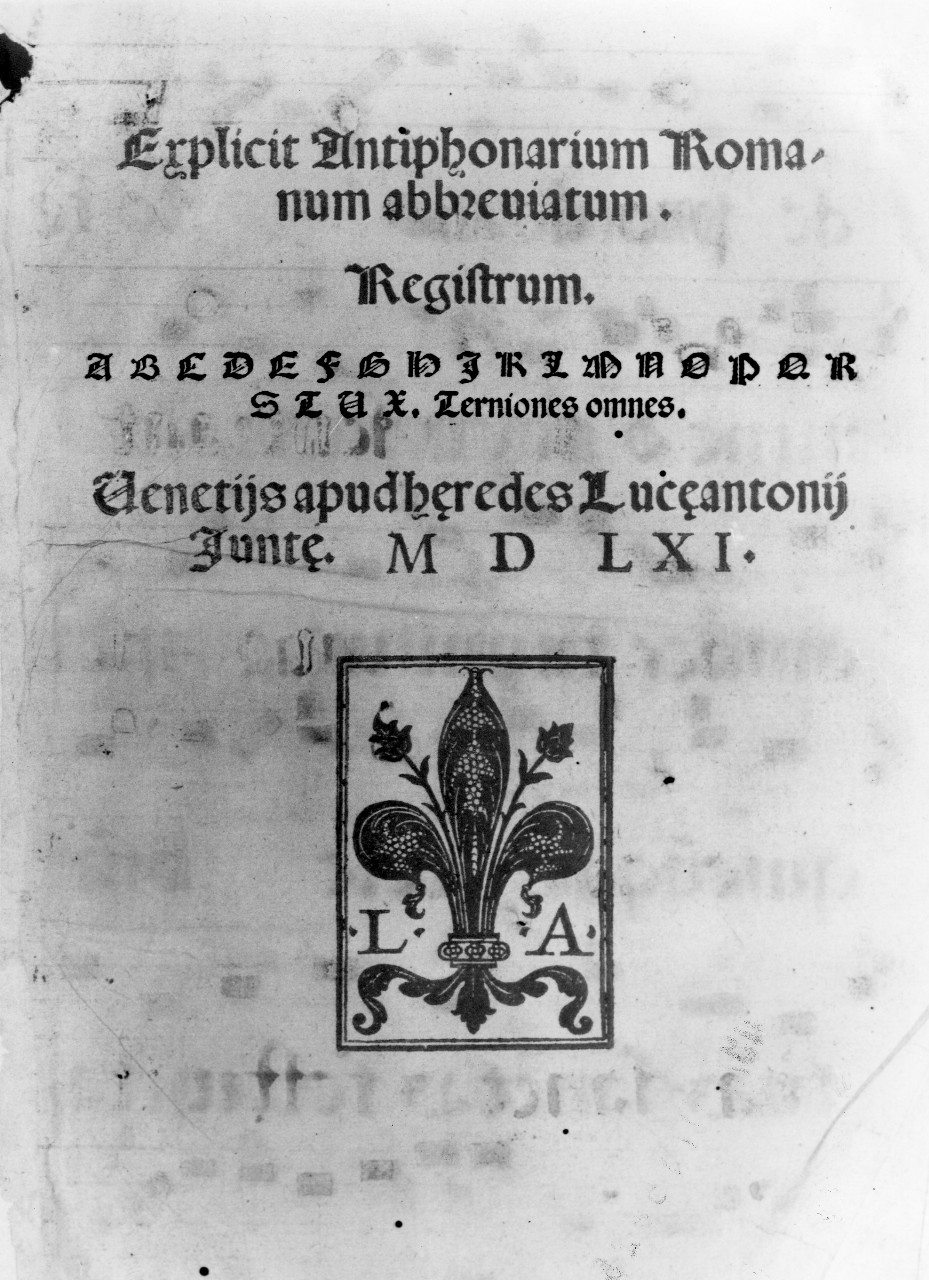 Explicit Antiphonarium Roma-
num abbreuiatum.
Registrum.
A B C D E F G H I K L M N O P Q R
S T U X. Terniones omnes.
Uenetijs apud hęredes Lucęantonij
Juntę. M D LXI.
·L· ·A·